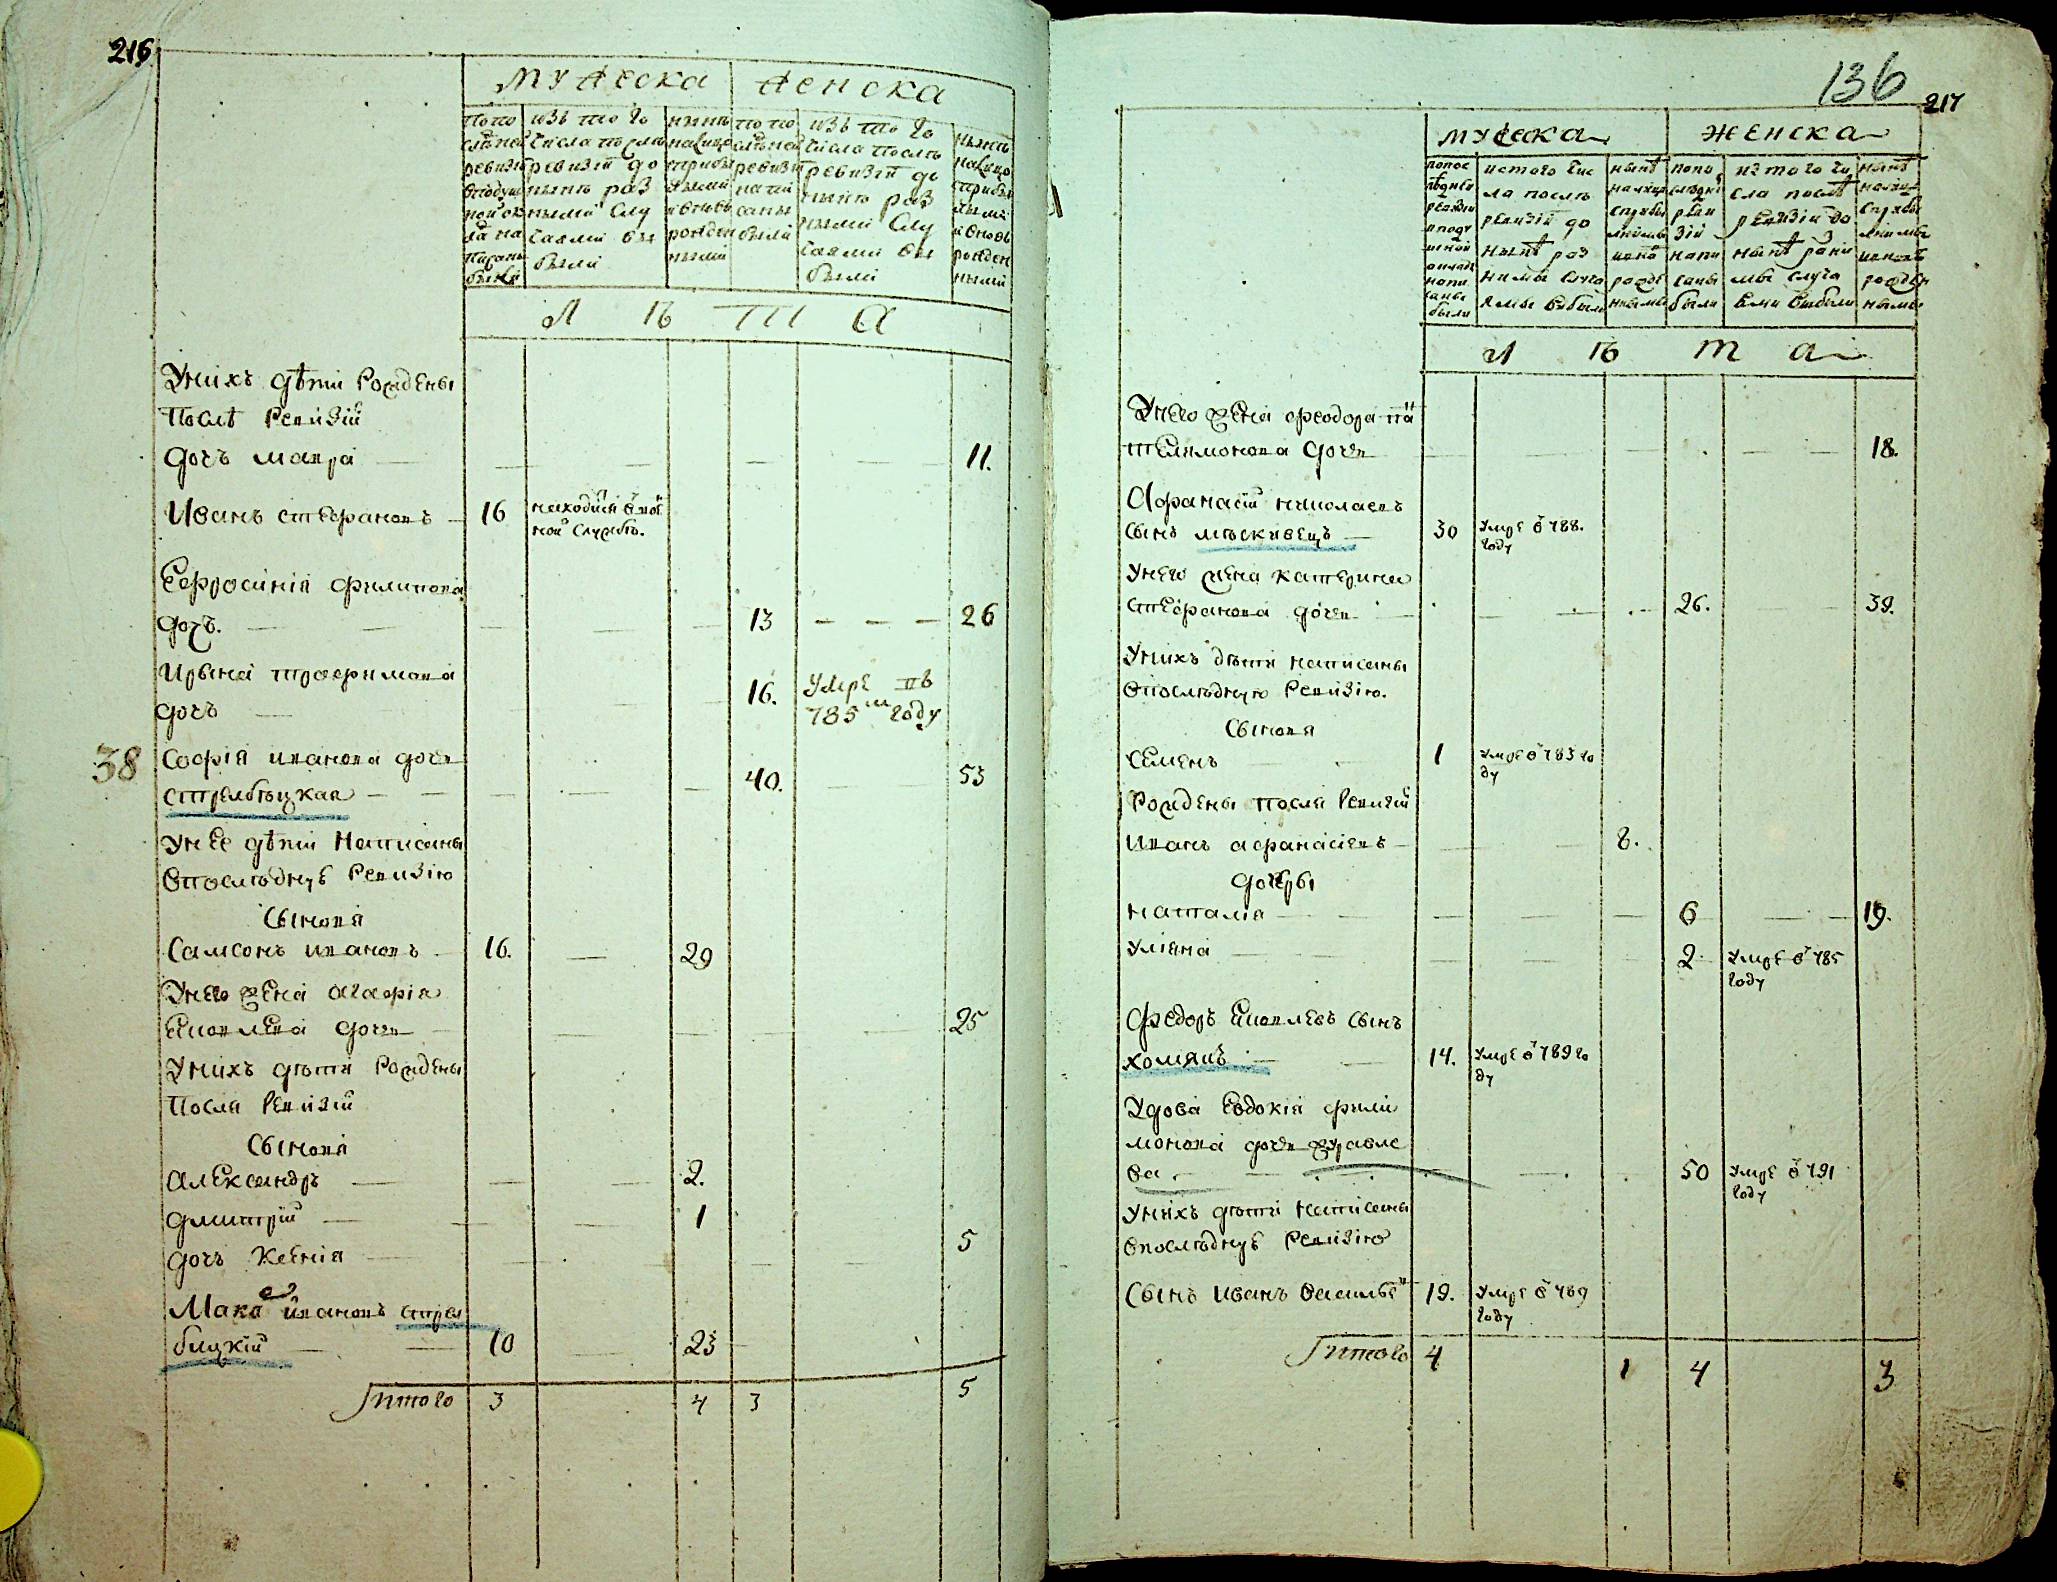 216
мужеска женска
по по следней ревизїи в подушной оклад написаны были
изъ того числа после ревизїи до ныне разными случаями выбыли
ныне налицо с прибылыми и вновь рожденными
по последней ревизїи написаны были
изъ того числа после ревизїи до ныне разными случаями выбыли
ныне налицо с прибылыми и вновь рожденными
л ѣ т а
Уних дѣти рождены
послѣ ревизїи
дочъ мавра 11.
Иванъ стефановъ 16 находится в
ной службѣ.
Ефросинїя филипова
дочъ. 13 26
Ирина трофимова
дочъ 16. умре въ
785м году
38 Софїя иванова дочъ
стрелбицкая 40. 53
Унее дѣти написаны
в последнуѣ ревизїю
сыновя
Самсонъ ивановъ 16. 29
Унего жена агафїя
яковлева дочъ 25
Унихъ дѣти рождены
после ревизїи
сыновя
александръ 2.
дмитрїй 1
дочъ ксенїя 5
Макаръ ивановъ стрел
бицкїй 10 23
Итого 3 4 3 5
136
217
мужеска женска
по последней ревизїи в подушной оклад написаны были
ис того числа после ревизїи до ныне разными случаями выбыли
ныне налицо с прибылыми и вновь рожденными
по последней ревизїи написаны были
из того числа после ревизїи до ныне разными случаями выбыли
ныне налицо с прибылыми и вновь рожденными
л ѣ т а
Унего жена феодора па
телимонова дочъ 18.
Афанасїй николаевъ
сынъ москивецъ 30 умре в 788.
году
Унего жена катерина
стефанова дочъ 26. 39.
Унихъ дѣти написаны
в последную ревизїю.
Сыновя
семенъ 1 умре в 783 го
ду
Рождены после ревизїи
иванъ афанасїевъ 8.
дочери
наталїя 6 19.
улияна 2. умре в 785
году
Федоръ яковлевъ сынъ
хомякъ 14. умре в 789 го
ду
Удова евдокїя фили
монова дочъ журавле
ва 50 умре в 791
году
Унихъ дѣти написаны
в последнуѣ ревизїю
Сынъ иванъ василье 19. умре в 789
году
Итого 4 1 4 3